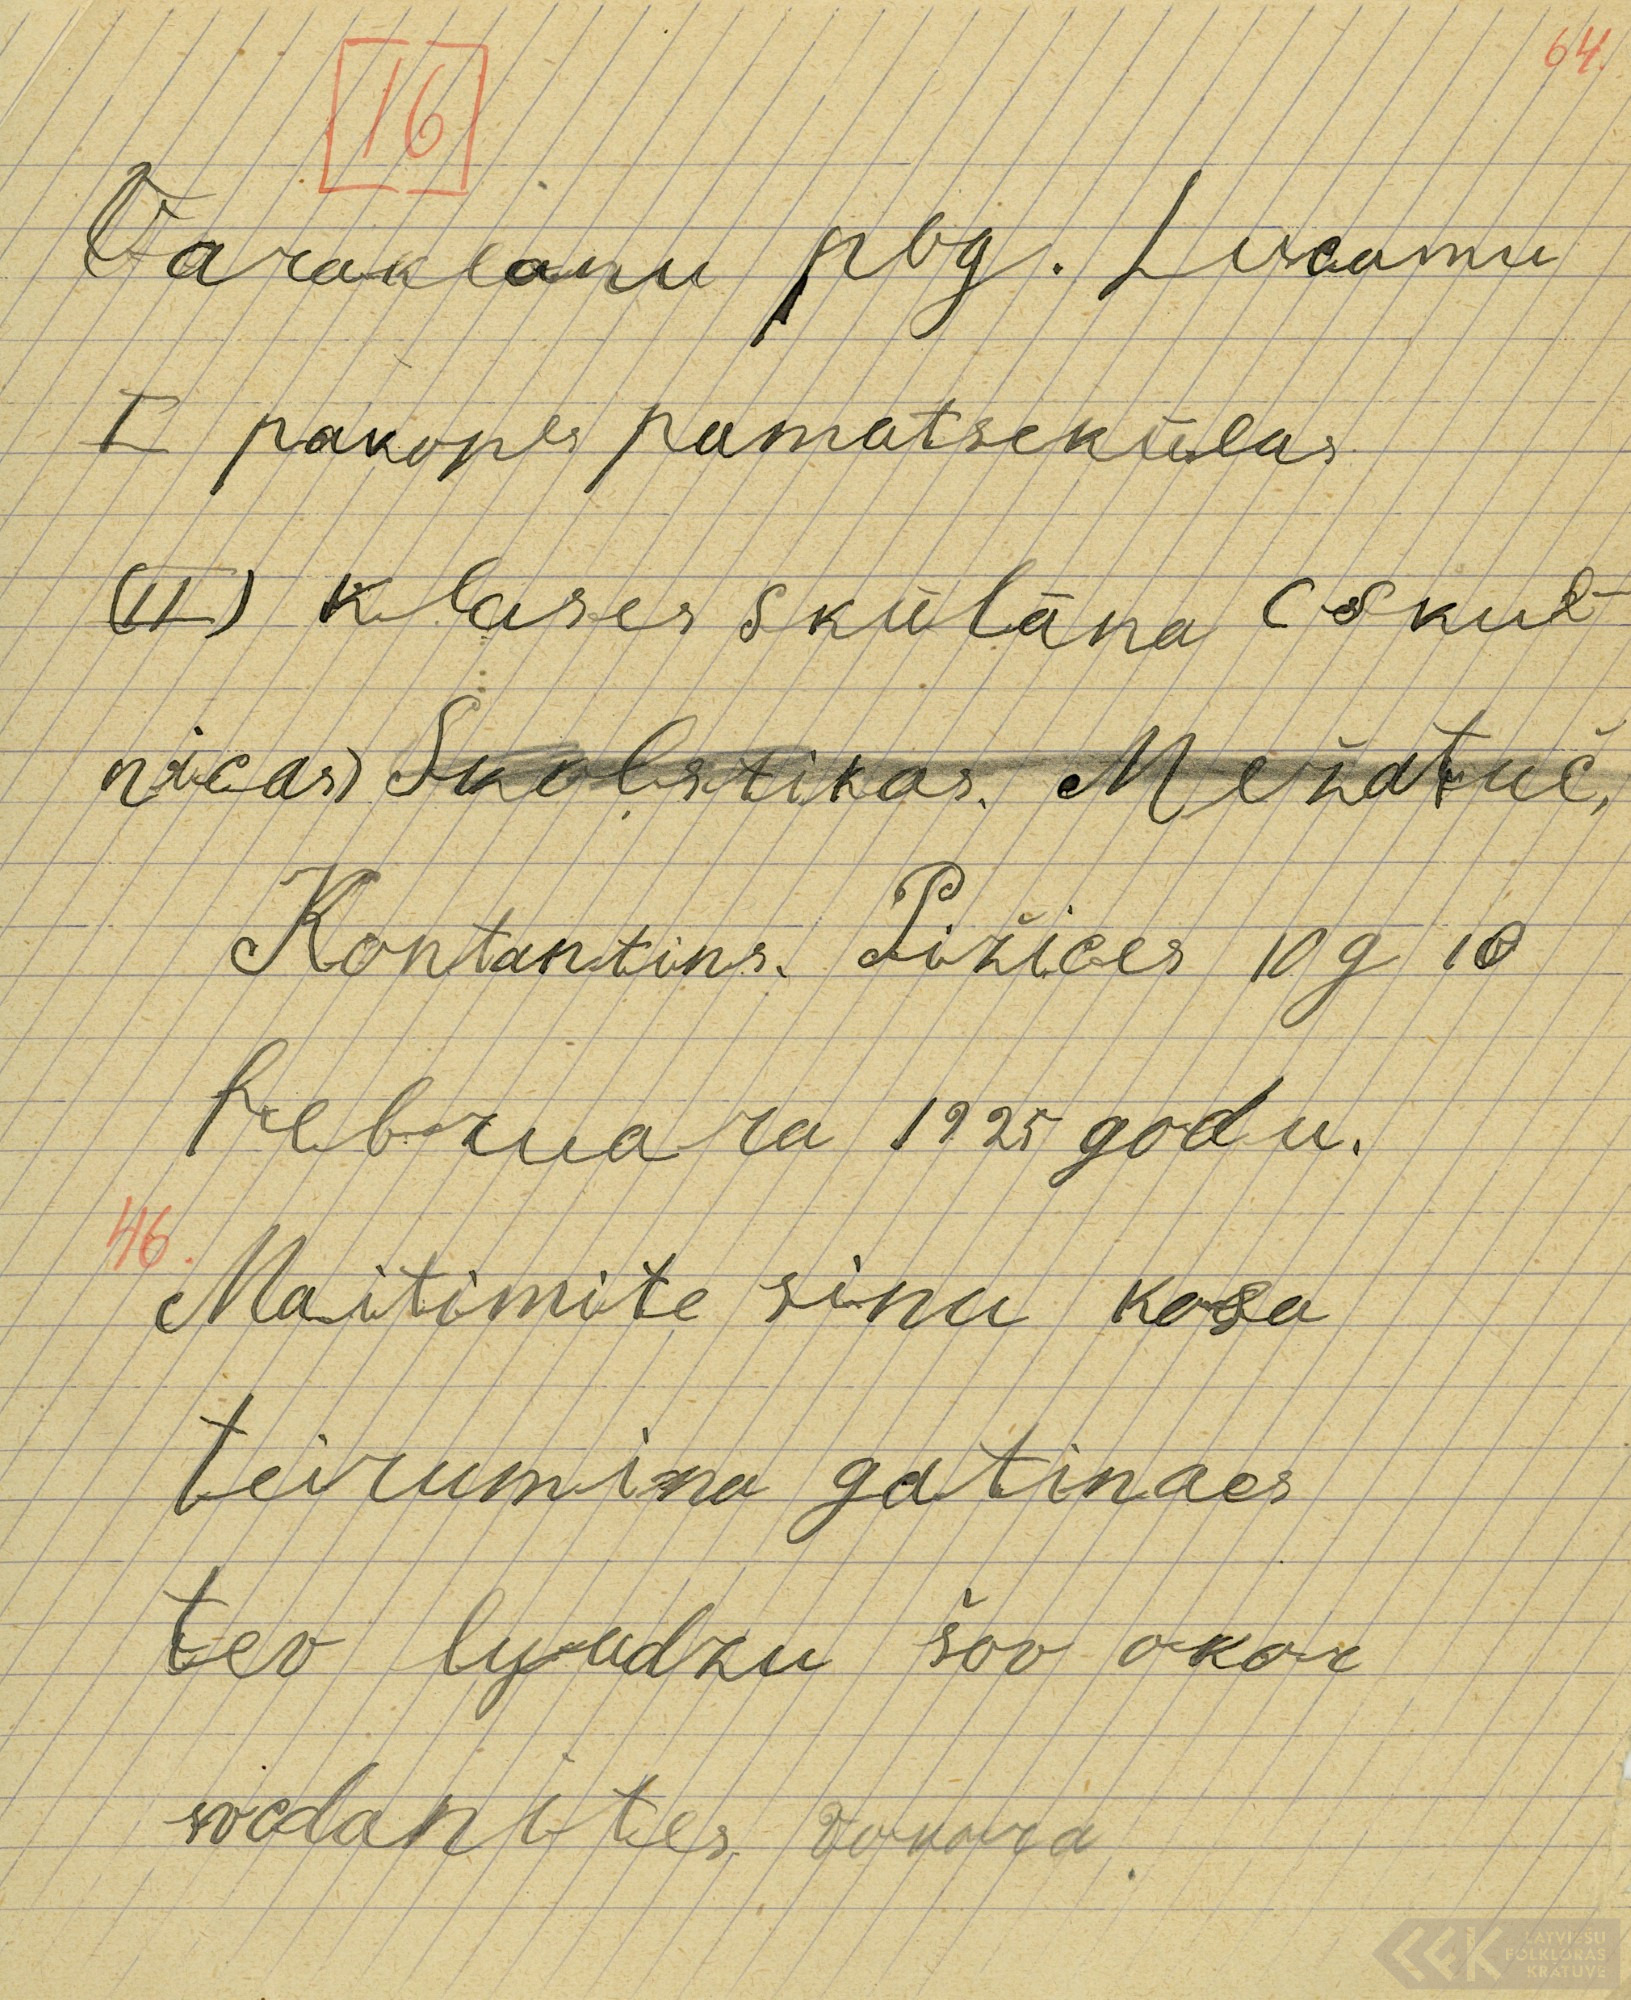 64.
16
Varaklanu pog. Lucamu
I pakopes pamatsckülas
(II) klases skülāna (skul-
nicas) Skolstikas. Mežatuč,
Kontantins. Pižices 10 g 10
februara 1925 godu.
46. Maitimite sinu kosa
teirumina gatinaes
tev lyudzu šov okor
svedanites vokora.
LATVIEŠU
FOLKLORAS
KRĀTUVE